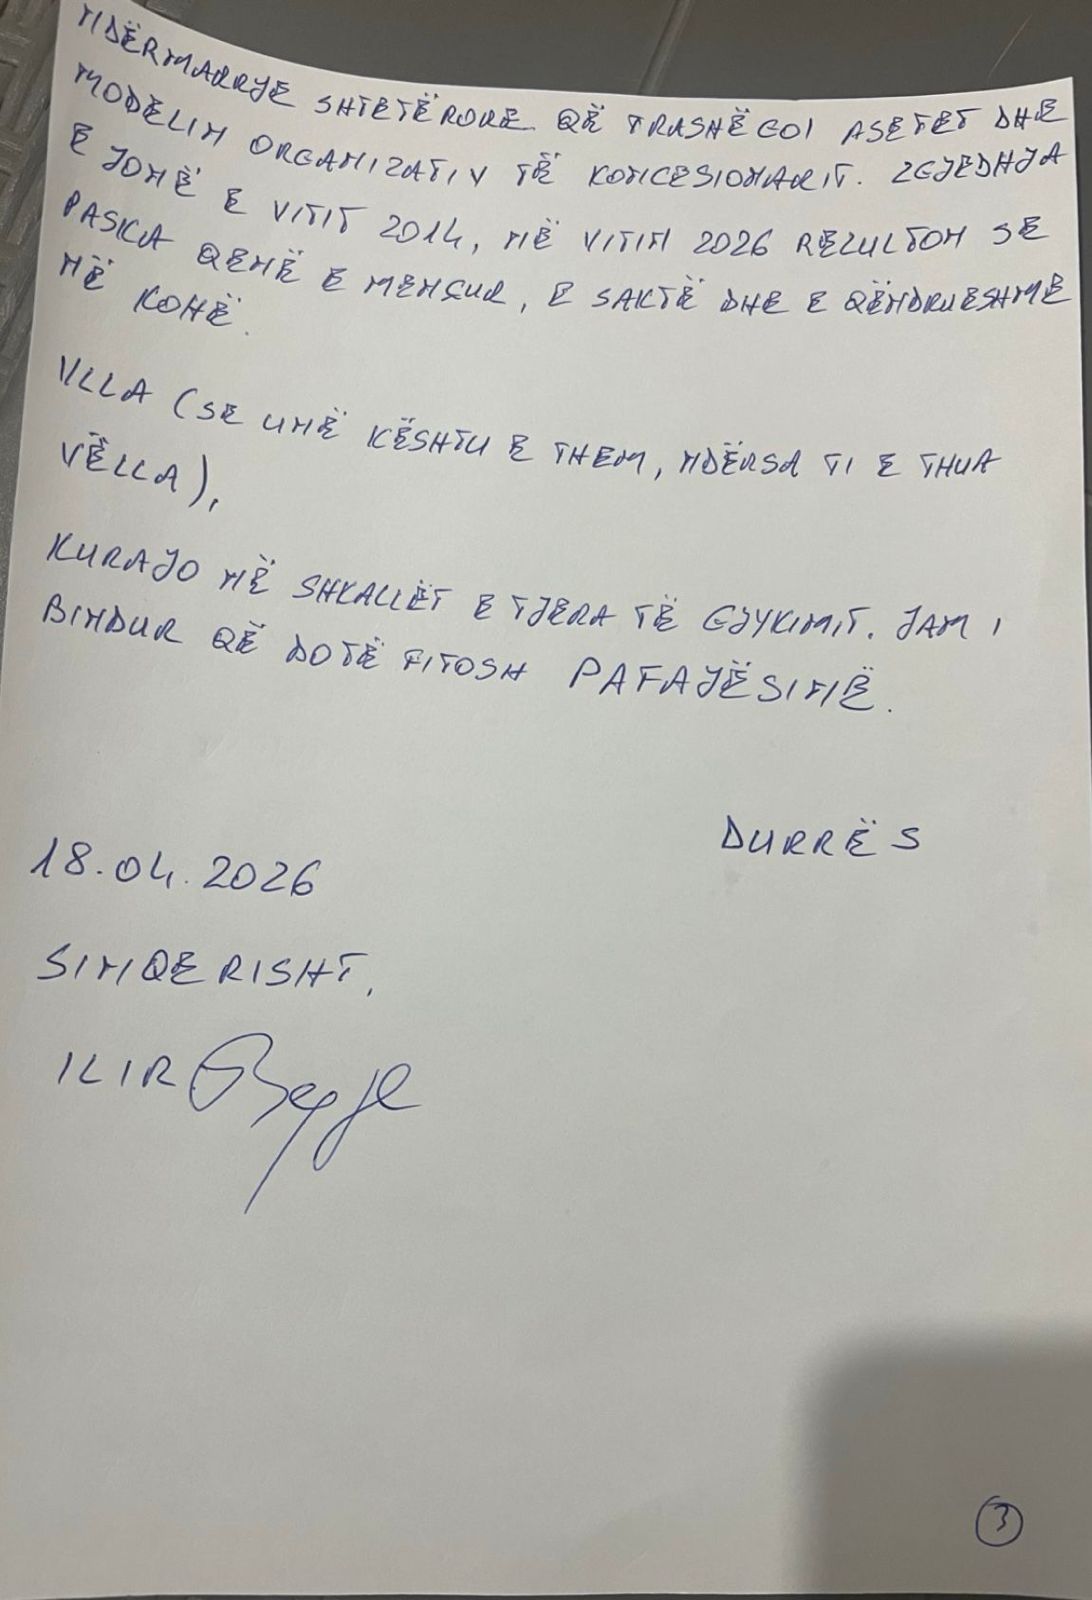 NDËRMARRJE SHTETËRORE QË TRASHËGOI ASETET DHE
MODELIN ORGANIZATIV TË KONCESIONARIT. ZGJEDHJA
E JONË E VITIT 2014, NË VITIN 2026 REZULTON SE
PASKA QENË E MENÇUR, E SAKTË DHE E QËNDRUESHME
NË KOHË.
VLLA (SE UNË KËSHTU E THEM, NDËRSA TI E THUA
VËLLA),
KURAJO NË SHKALLËT E TJERA TË GJYKIMIT. JAM I
BINDUR QË DOTË FITOSH PAFAJËSINË.
DURRËS
18.04.2026
SINQERISHT,
ILIR
3